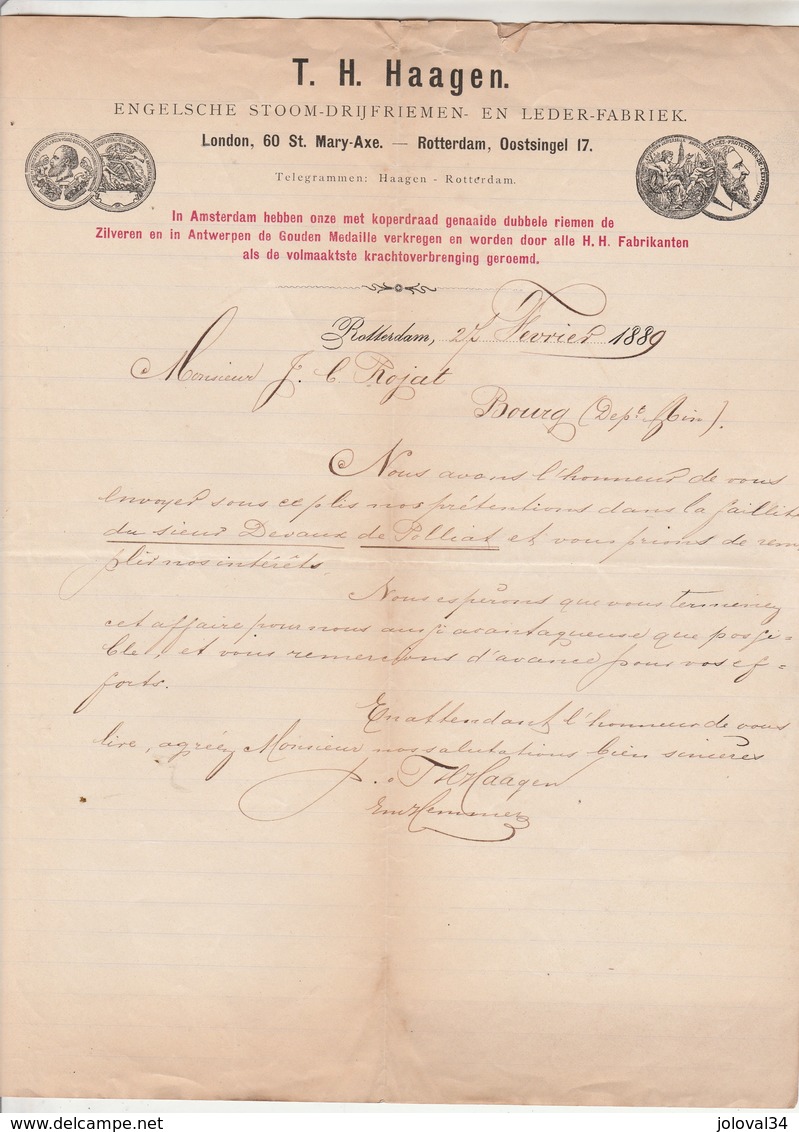 T. H. Haagen.
ENGELSCHE STOOM-DRIJFRIEMEN- EN LEDER-FABRIEK.
London, 60 St. Mary-Axe. — Rotterdam, Oostsingel 17.
Telegrammen: Haagen - Rotterdam.
In Amsterdam hebben onze met koperdraad genaaide dubbele riemen de
Zilveren en in Antwerpen de Gouden Medaille verkregen en worden door alle H. H. Fabrikanten
als de volmaaktste krachtoverbrenging geroemd.
Rotterdam, 27 Fevrier 1889
Monsieur J. C Rojat
Bourg (Dept. Ain).
Nous avons l'honneur de vous
envoyer sous ce plis nos prétentions dans la faillite
du sieur Devaux de Polliat et vous prions de rem
plir nos intérêts.
Nous espérons que vous terminez
cet affaire pour nous aussi avantaqueuse que possi-
ble, et vous remercions d'avance pour vos ef-
forts.
En attendant l'honneur de vous
lire, agréez Monsieur nos salutations bien sincères
p. o THHaagen
joloval34